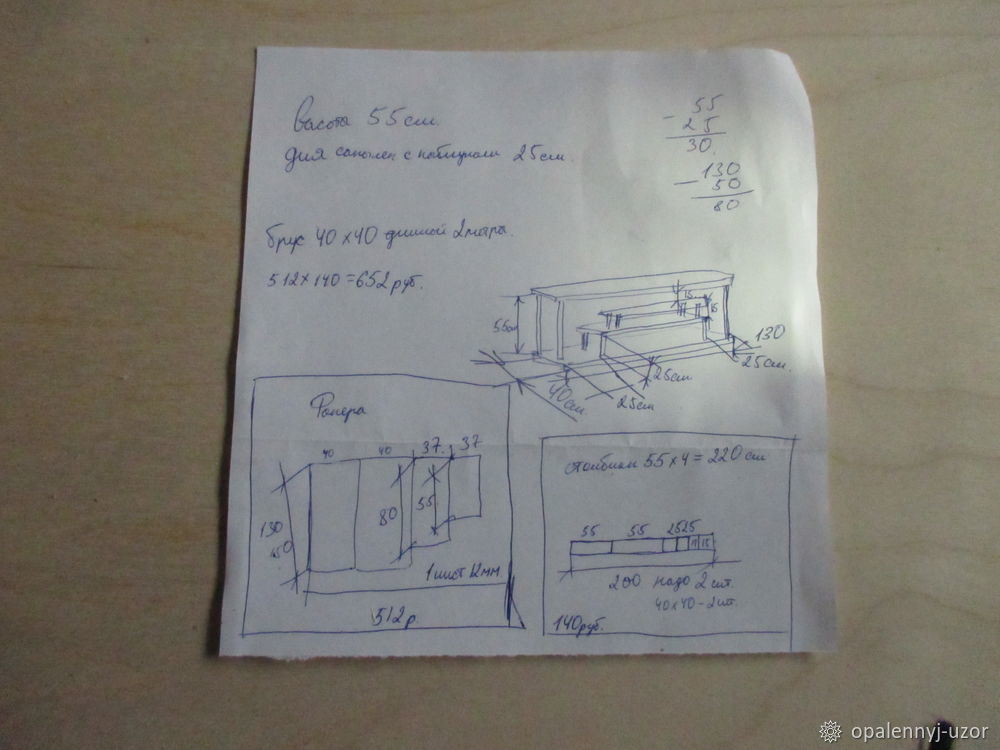 Васота 55см.
для сапожек с каблуками 25см.
55
- 25
30.
130
- 50
80
брус 40х40 длиной 2метра.
512х140=652руб.
55см
15
15
130
25см.
25см
25см
40см
Фанера
40 40 37. 37
130
150
80
55
1 лист 12мм
512р.
столбики 55х4=220см
55 55 25 25 15
200 надо 2 шт.
40х40-2шт.
140руб.
opalennyj-uzor